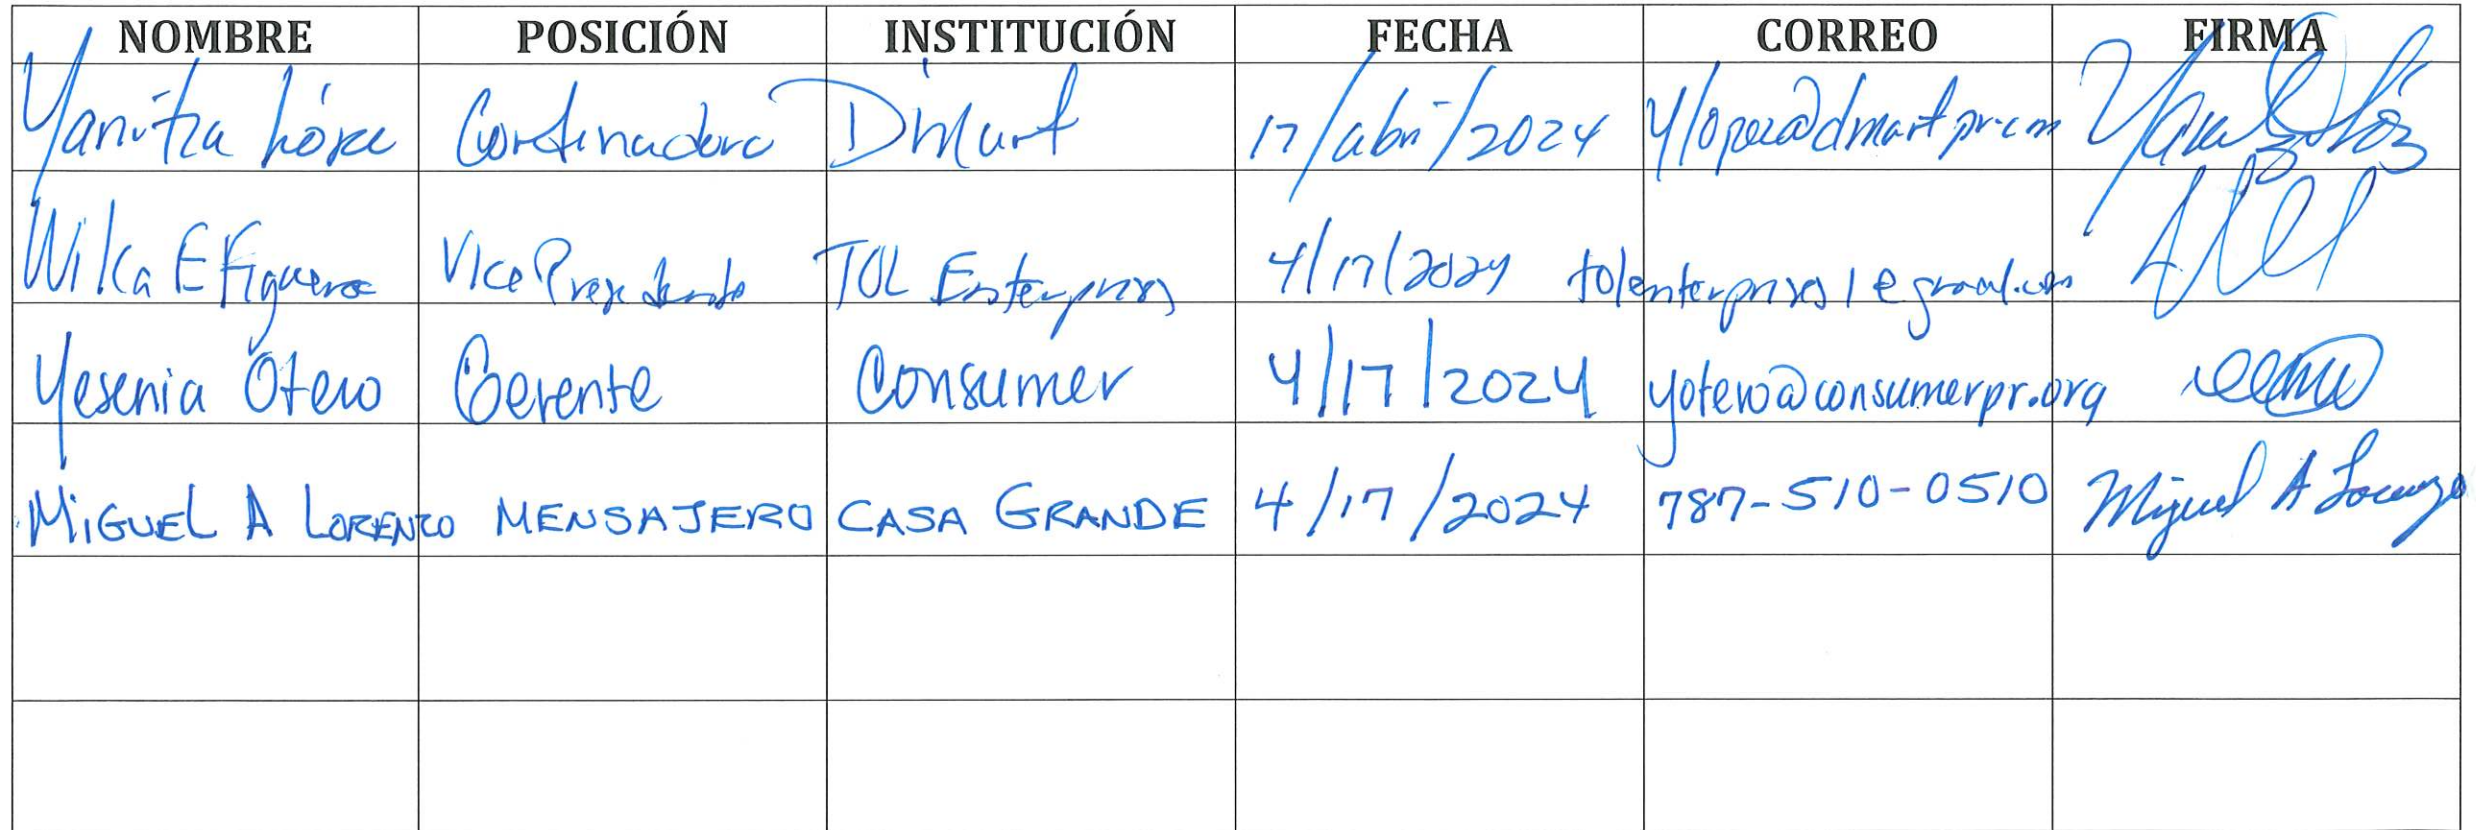 NOMBRE POSICIÓN INSTITUCIÓN FECHA CORREO FIRMA
Yanitza López Coordinadora D'Mart 17/abri/2024 ylopez@dmartpr.com
Wilca E Figueroa Vice Presidente TOL Enterprises 4/17/2024 tolenterprises1@gmail.com
Yesenia Otero Gerente Consumer 4/17/2024 yotero@consumerpr.org
MIGUEL A LORENZO MENSAJERO CASA GRANDE 4/17/2024 787-510-0510 Miguel A Lorenzo